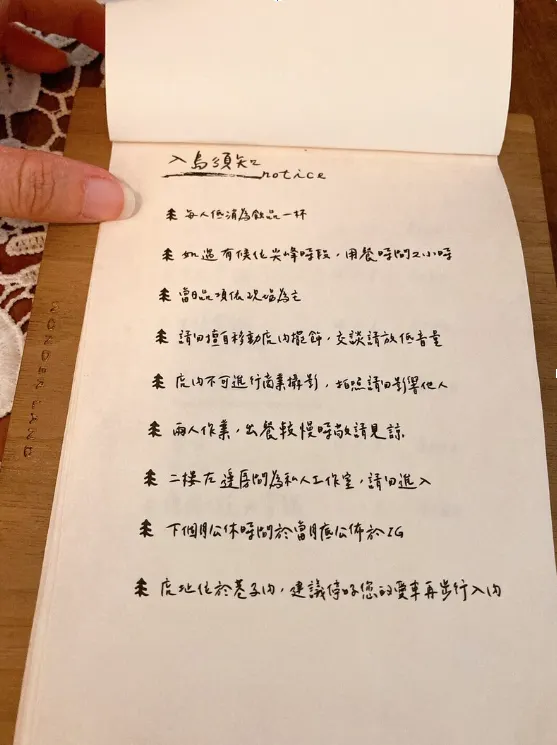 入島須知
notice
每人低消為飲品一杯
如遇有候位尖峰時段，用餐時間2小時
當日品項依現場為主
請勿擅自移動店內擺飾，交談請放低音量
店內不可進行商業攝影，拍照請勿影響他人
兩人作業，出餐較慢時敬請見諒
二樓左邊房間為私人工作室，請勿進入
下個月公休時間於當月底公佈於IG
店地位於巷子內，建議停好您的愛車再步行入內
WONDER LAND